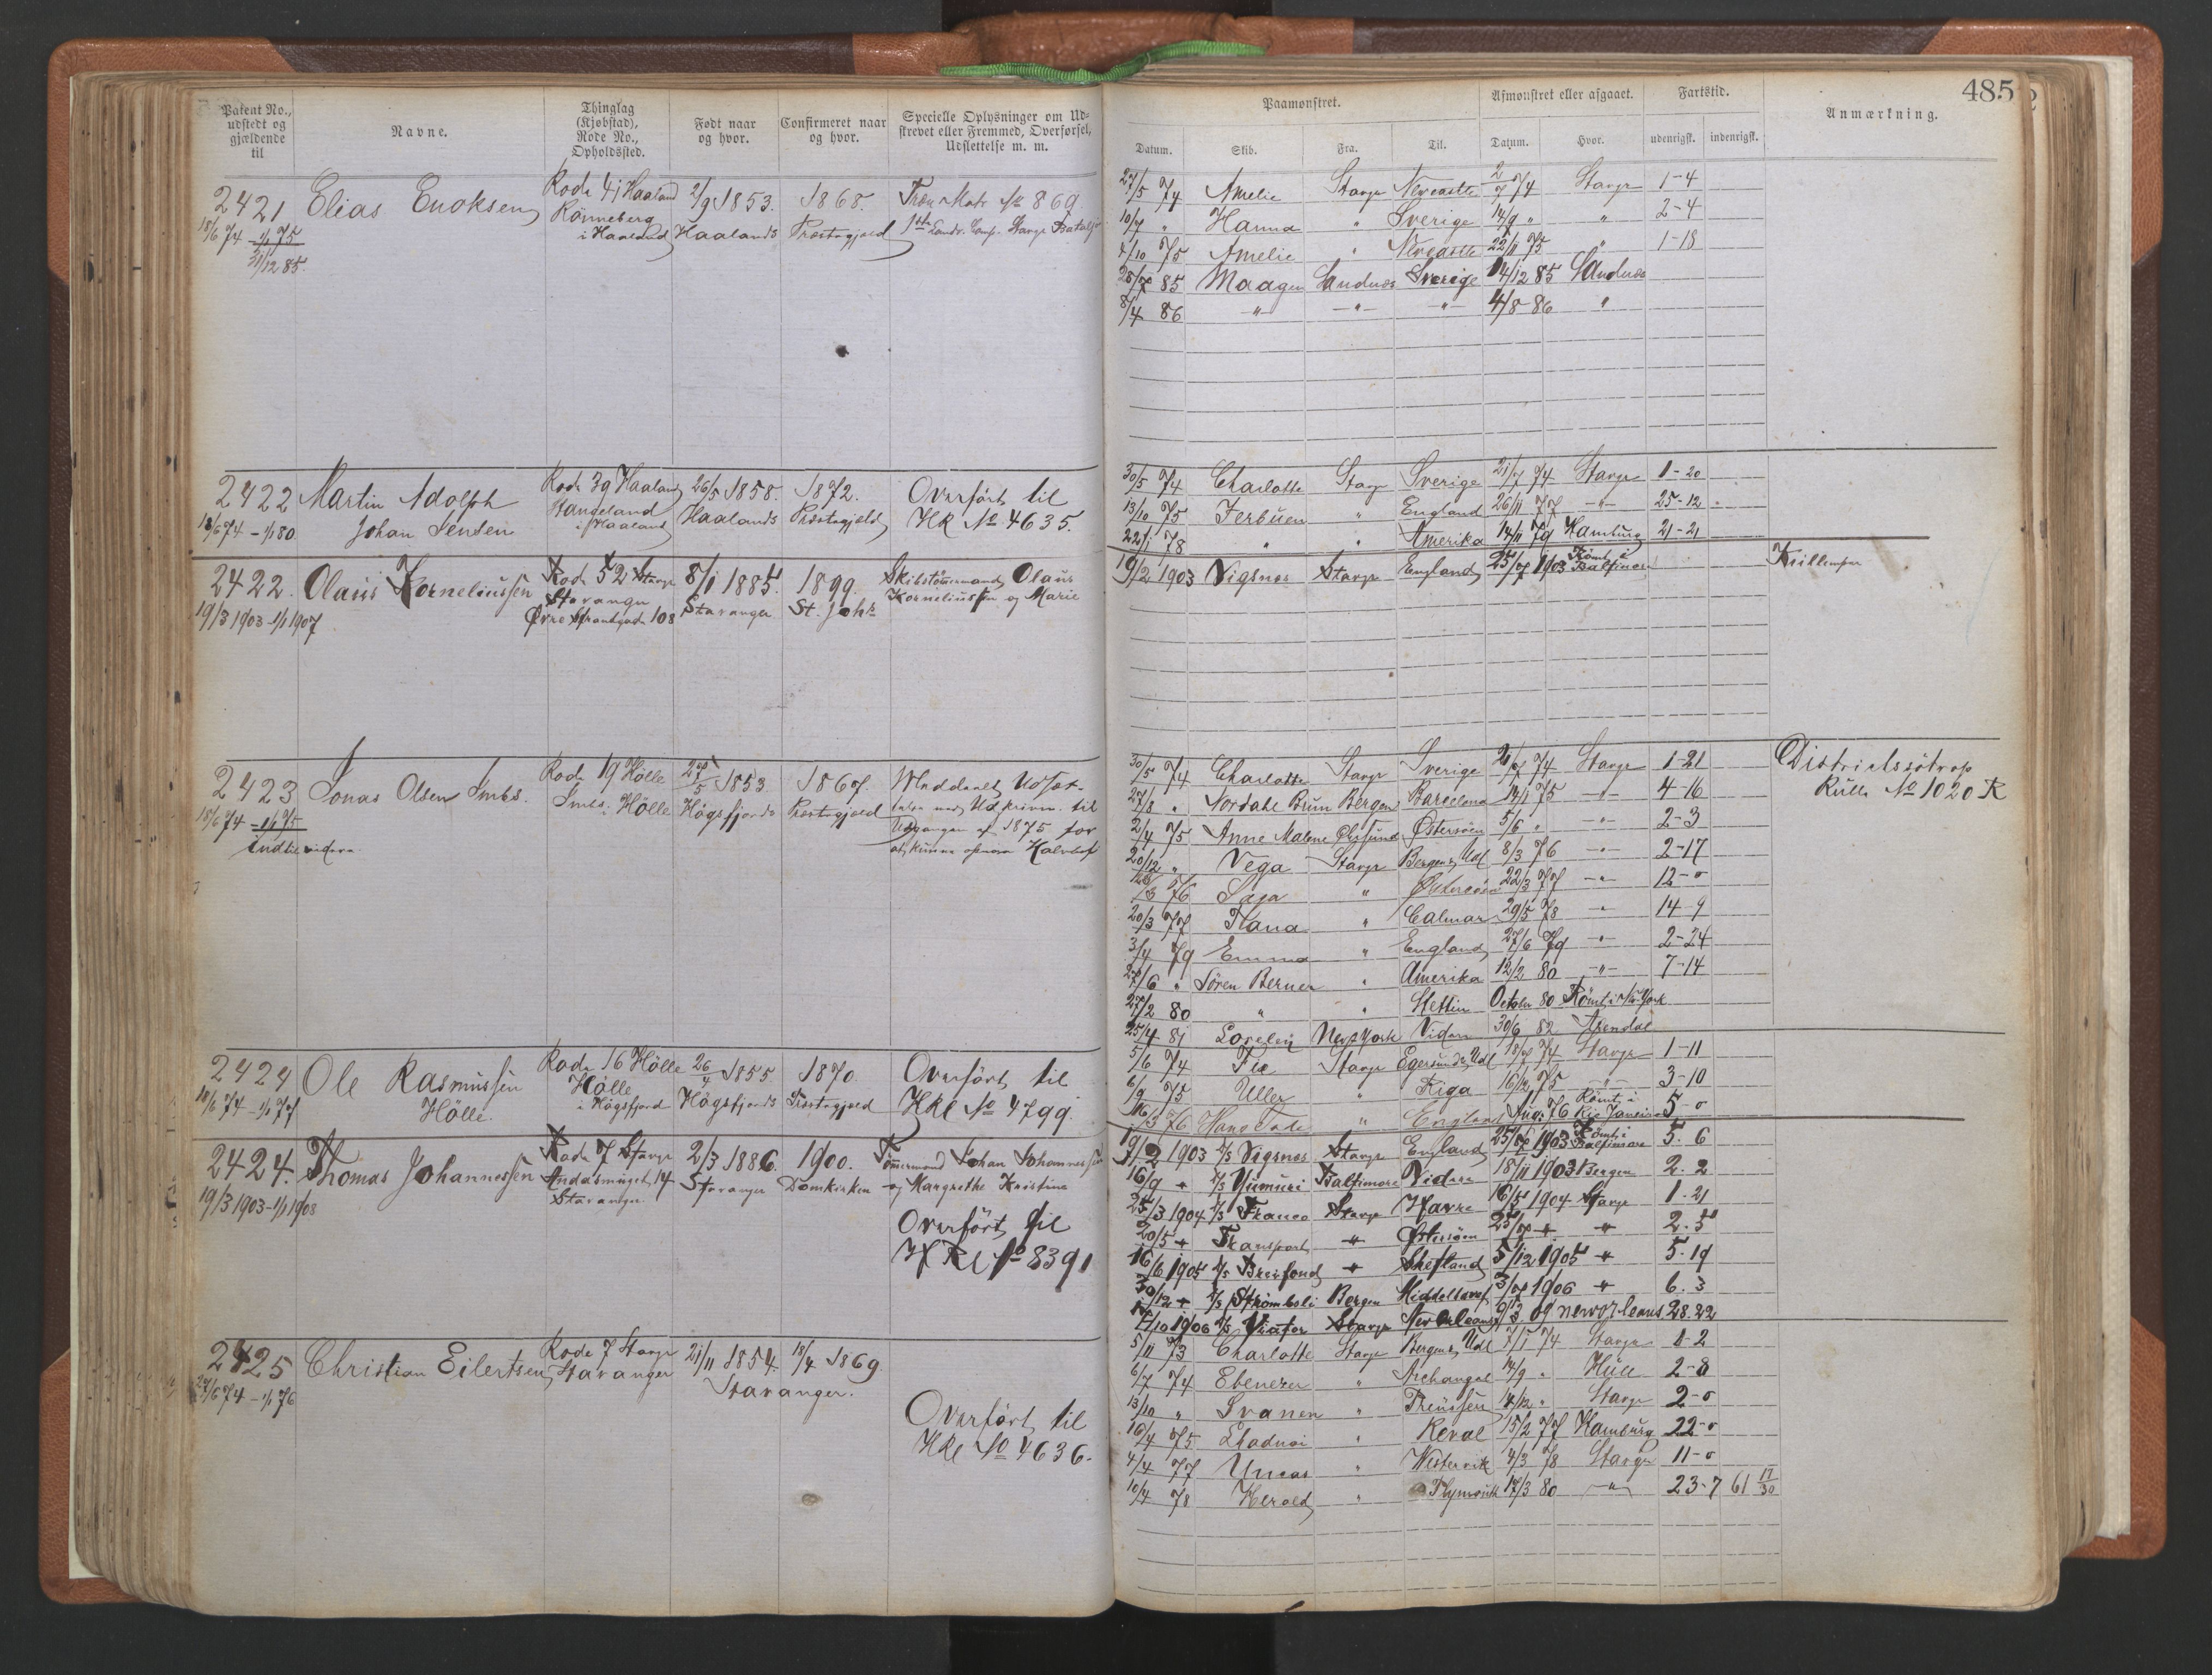 Patent No., udstedt og gjældende til
Navne.
Thinglag (Kjøbstad), Rode No., Opholdssted.
Født naar og hvor.
Confirmeret naar og hvor.
Specielle Oplysninger om Udskrevet eller Fremmed, Overførsel, Udslettelse m. m.
Paamønstret.
Afmønstret eller afgaaet.
Fartstid.
Anmærkning.
485
Datum. Skib. Fra. Til. Datum. Hvor. udenrigsk. indenrigsk.
2421 Elias Enoksen Rode 41 Haaland 2/9 1853. 1868.
18/6 74 - 1/1 75 Rönneberg i Haaland Haalands Præstegjeld
31/12 85.
27/5 74 Amelie Stavgr Newcastle 2/7 74 Stavgr 1-4
10/7 " Hanna " Sverige 14/9 " " 2-4
4/10 75 Amelie " Newcastle 22/11 75 " 1-18
28/7 85 Maagen Sandnes Sverige 14/12 85 Sandnes
8/4 86 -"- -"- -"- 4/8 86 "
2422 Martin Adolph Rode 39 Haaland 26/5 1858. 1872. Overført til
18/6 74 - 1/1 80 Johan Senden Stangeland i Haaland Haalands Præstegjeld HR No 4635.
30/5 74 Charlotte Stavgr Sverige 21/7 74 Stavgr 1-20
13/10 75 Ferbuen " England 26/11 77 -"- 25-12
22/1 78 " " Amerika 14/11 79 Hamburg 21-21
2422. Olaus Korneliussen Rode 52 Stavgr 8/1 1885. 1899. Skibstømmermand Olaus
19/3 1903 - 1/1 1907 Stavanger Øvre Strandgade 108 Stavanger St. Joh. Korneliussen og Marie
19/2 1903 Vigsnes Stavgr England 25/7 1903 Rømt i Baltimore
2423 Jonas Olsen Imbs. Rode 19 Hölle 27/5 1853. 1867. Meddelt Udsæt-
18/6 74 - 1/1 75 Imbs. Hölle Högsfjords Præstegjeld telse med Udskrivn. til
indtil videre Udgangen af 1875 for
30/5 74 Charlotte Stavgr Sverige 21/7 74 Stavgr 1-21
Rulle No 1020 R
27/8 " Nordahl Brun Bergen Barcelona 14/1 75 -"- 4-16
2/4 75 Anne Malene Østersøen 5/6 " -"- 2-3
20/12 " Vega Stavgr Bergen, Udl 8/3 76 -"- 2-17
76 Saga " Østersøen 22/3 77 -"- 12-0
20/3 77 Kana " Calmar 29/5 78 -"- 14-9
3/4 79 Emma " England 27/6 79 -"- 2-24
27/6 " Sören Berner " Amerika 12/2 80 -"- 7-14
27/2 80 " " Stettin October 80 Rømt i New York
25/4 81 Loreley New York Videre 30/9 82 Arendal
2424 Ole Rasmussen Rode 16 Hölle 26/4 1855. 1870 Overført til
18/6 74 - 1/1 77 Hölle. Hölle i Högsfjord Högsfjords Præstegjeld HRl No 4799.
5/6 74 Fix Stavgr Egersund, Udl 18/7 74 Stavgr 1-11
6/9 75 Uller " Riga 16/12 75 " 3-10
16/3 76 Hans Tate " England Aug. 76 Rømt i Rio Janeiro 5-0
2424. Thomas Johannessen Rode 7 Stavgr 2/3 1886. 1900. Tömmermand Johan Johannessen
19/3 1903 - 1/1 1908 Andasmuget 14 Stavanger Stavanger Domkirken og Margrethe Kristine
Overført til
HRl No 8391
19/2 1903 Vigsnes Stavgr England 25/7 1903 Rømt i Baltimore 5. 6
16/9 Yumuri Baltimore Videre 18/11 1903 Bergen 2. 2
25/3 1904 Franco Stavgr Havre 16/5 1904 Stavgr 1. 21
20/5 Transport Østersøen 25/7 2. 5
16/6 1905 Breifond Shetland 5/12 1905 5. 19
30/12 Strømboli Bergen Middelhavet 3/7 1906 6. 3
17/10 1906 Viator Stavgr New Orleans 09 new orleans 28. 22
2425 Christian Eilertsen Rode 7 Stavgr 21/11 1854. 18/4 1869.
27/6 74 - 1/1 76 Stavanger Stavanger.
Overført til
HRl No 4636.
5/11 73 Charlotte Stavgr Bergen, Udl 7/1 74 Stavgr 1-2
6/7 74 Ebenezer " Archangel 14/9 " Hull 2-8
13/10 " Svanen " Preussen 14/12 " Stavgr 2-0
16/4 75 " Reval 15/2 77 Hamburg 22-0
4/4 77 Uncas " Westervik 4/3 78 Stavgr 11-0
10/4 78 Herold " Plymouth 17/3 80 -"- 23-7 61 17/30